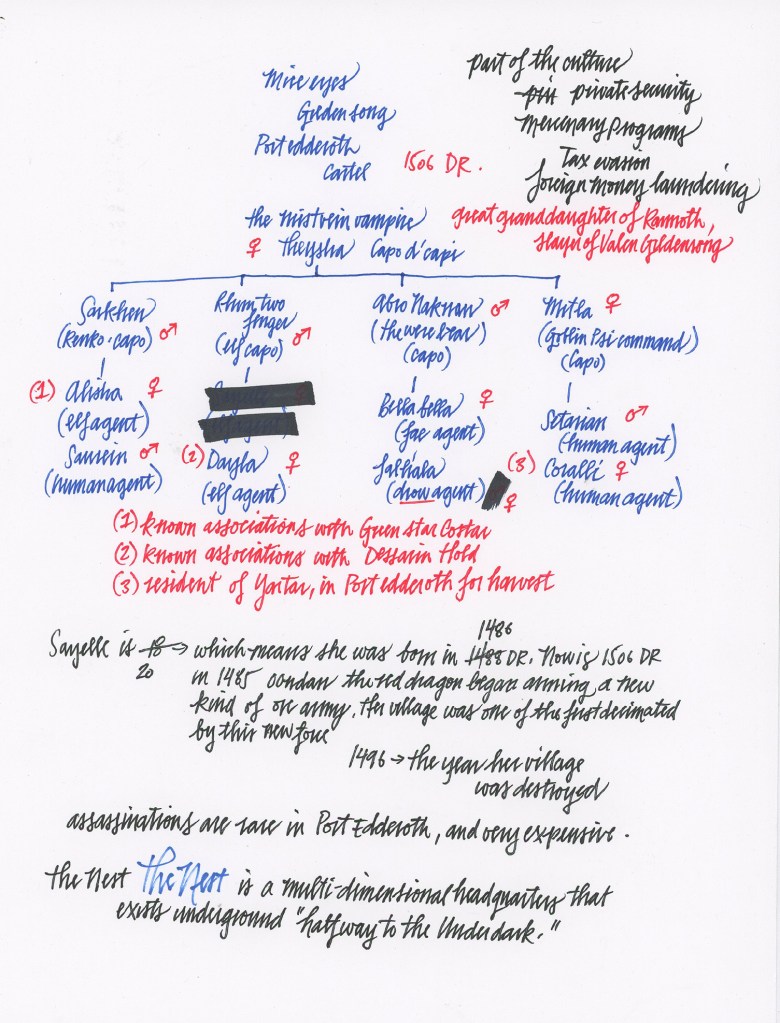 Mice eyes
Gildensong
Port edderoth
Cartel
1506 DR.
part of the culture
private security
mercenary programs
Tax evasion
foreign money laundering
the mistvein vampire
♀ Theysha Capo d'capi
great granddaughter of Rammoth,
slayer of Valen Gildensong
Sarkhen
(Renko-capo) ♂
(1) Alisha ♀
(elf agent)
♂
(human agent)
Rhum two
finger
(elf capo) ♂
(2) Dayla ♀
(elf agent)
Abro Naknan ♂
(the were bear)
(capo)
Bella bella ♀
(fae agent)
(drow agent) ♀
Mitla ♀
(Goblin Psi command)
(Capo)
Setarian ♂
(human agent)
(3) Coralli ♀
(human agent)
(1) known associations with Green star Costar
(2) known associations with Dessarin Hold
(3) resident of Yartar, in Port edderoth for harvest
Sayelle is 18 → which means she was born in 1488 DR. Now is 1506 DR
20
1486
in 1485 the red dragon began arming a new
kind of orc army. Her village was one of the first decimated
by this new force
1496 → the year her village
was destroyed
assassinations are rare in Port Edderoth, and very expensive.
the Nest The Nest is a multi-dimensional headquarters that
exists underground "halfway to the Underdark."